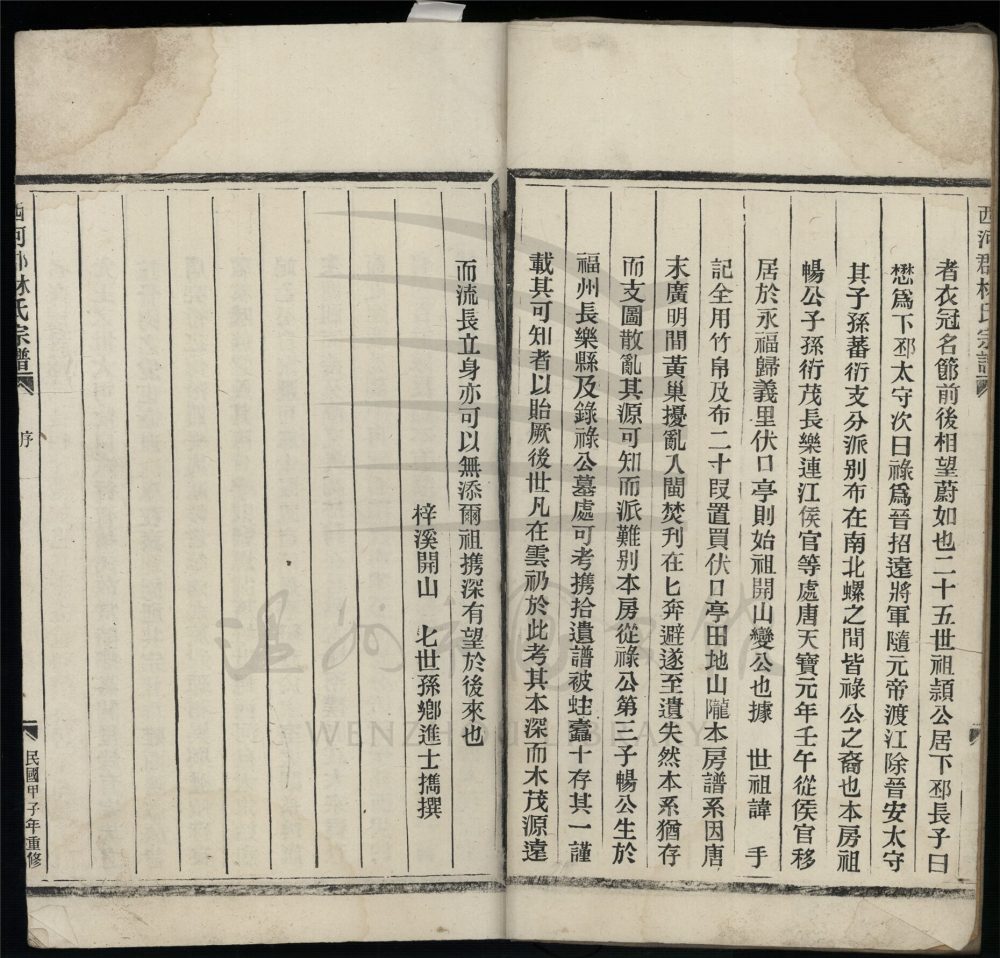 西河郡林氏宗譜
者衣冠名節前後相望蔚如也二十五世祖穎公居下邳長子曰
懋爲下邳太守次曰祿爲晉招遠將軍隨元帝渡江除晉安太守
其子孫蕃衍支分派別布在南北螺之間皆祿公之裔也本房祖
暢公子孫衍茂長樂連江侯官等處唐天寶元年壬午從侯官移
居於永福歸義里伏口亭則始祖開山變公也據 世祖諱 手
記全用竹帛及布二十段置買伏口亭田地山隴本房譜系因唐
末廣明間黃巢擾亂入閩焚刋在匕奔避遂至遺失然本系猶存
而支圖散亂其源可知而派難別本房從祿公第三子暢公生於
福州長樂縣及錄祿公墓處可考携拾遺譜被蛀蠹十存其一謹
載其可知者以貽厥後世凡在雲礽於此考其本深而木茂源遠
而流長立身亦可以無添爾祖携深有望於後來也
梓溪開山 七世孫鄉進士擕撰
西河郡林氏宗譜
序
民國甲子年重修
溫州市圖書館
WENZHOU LIBRARY